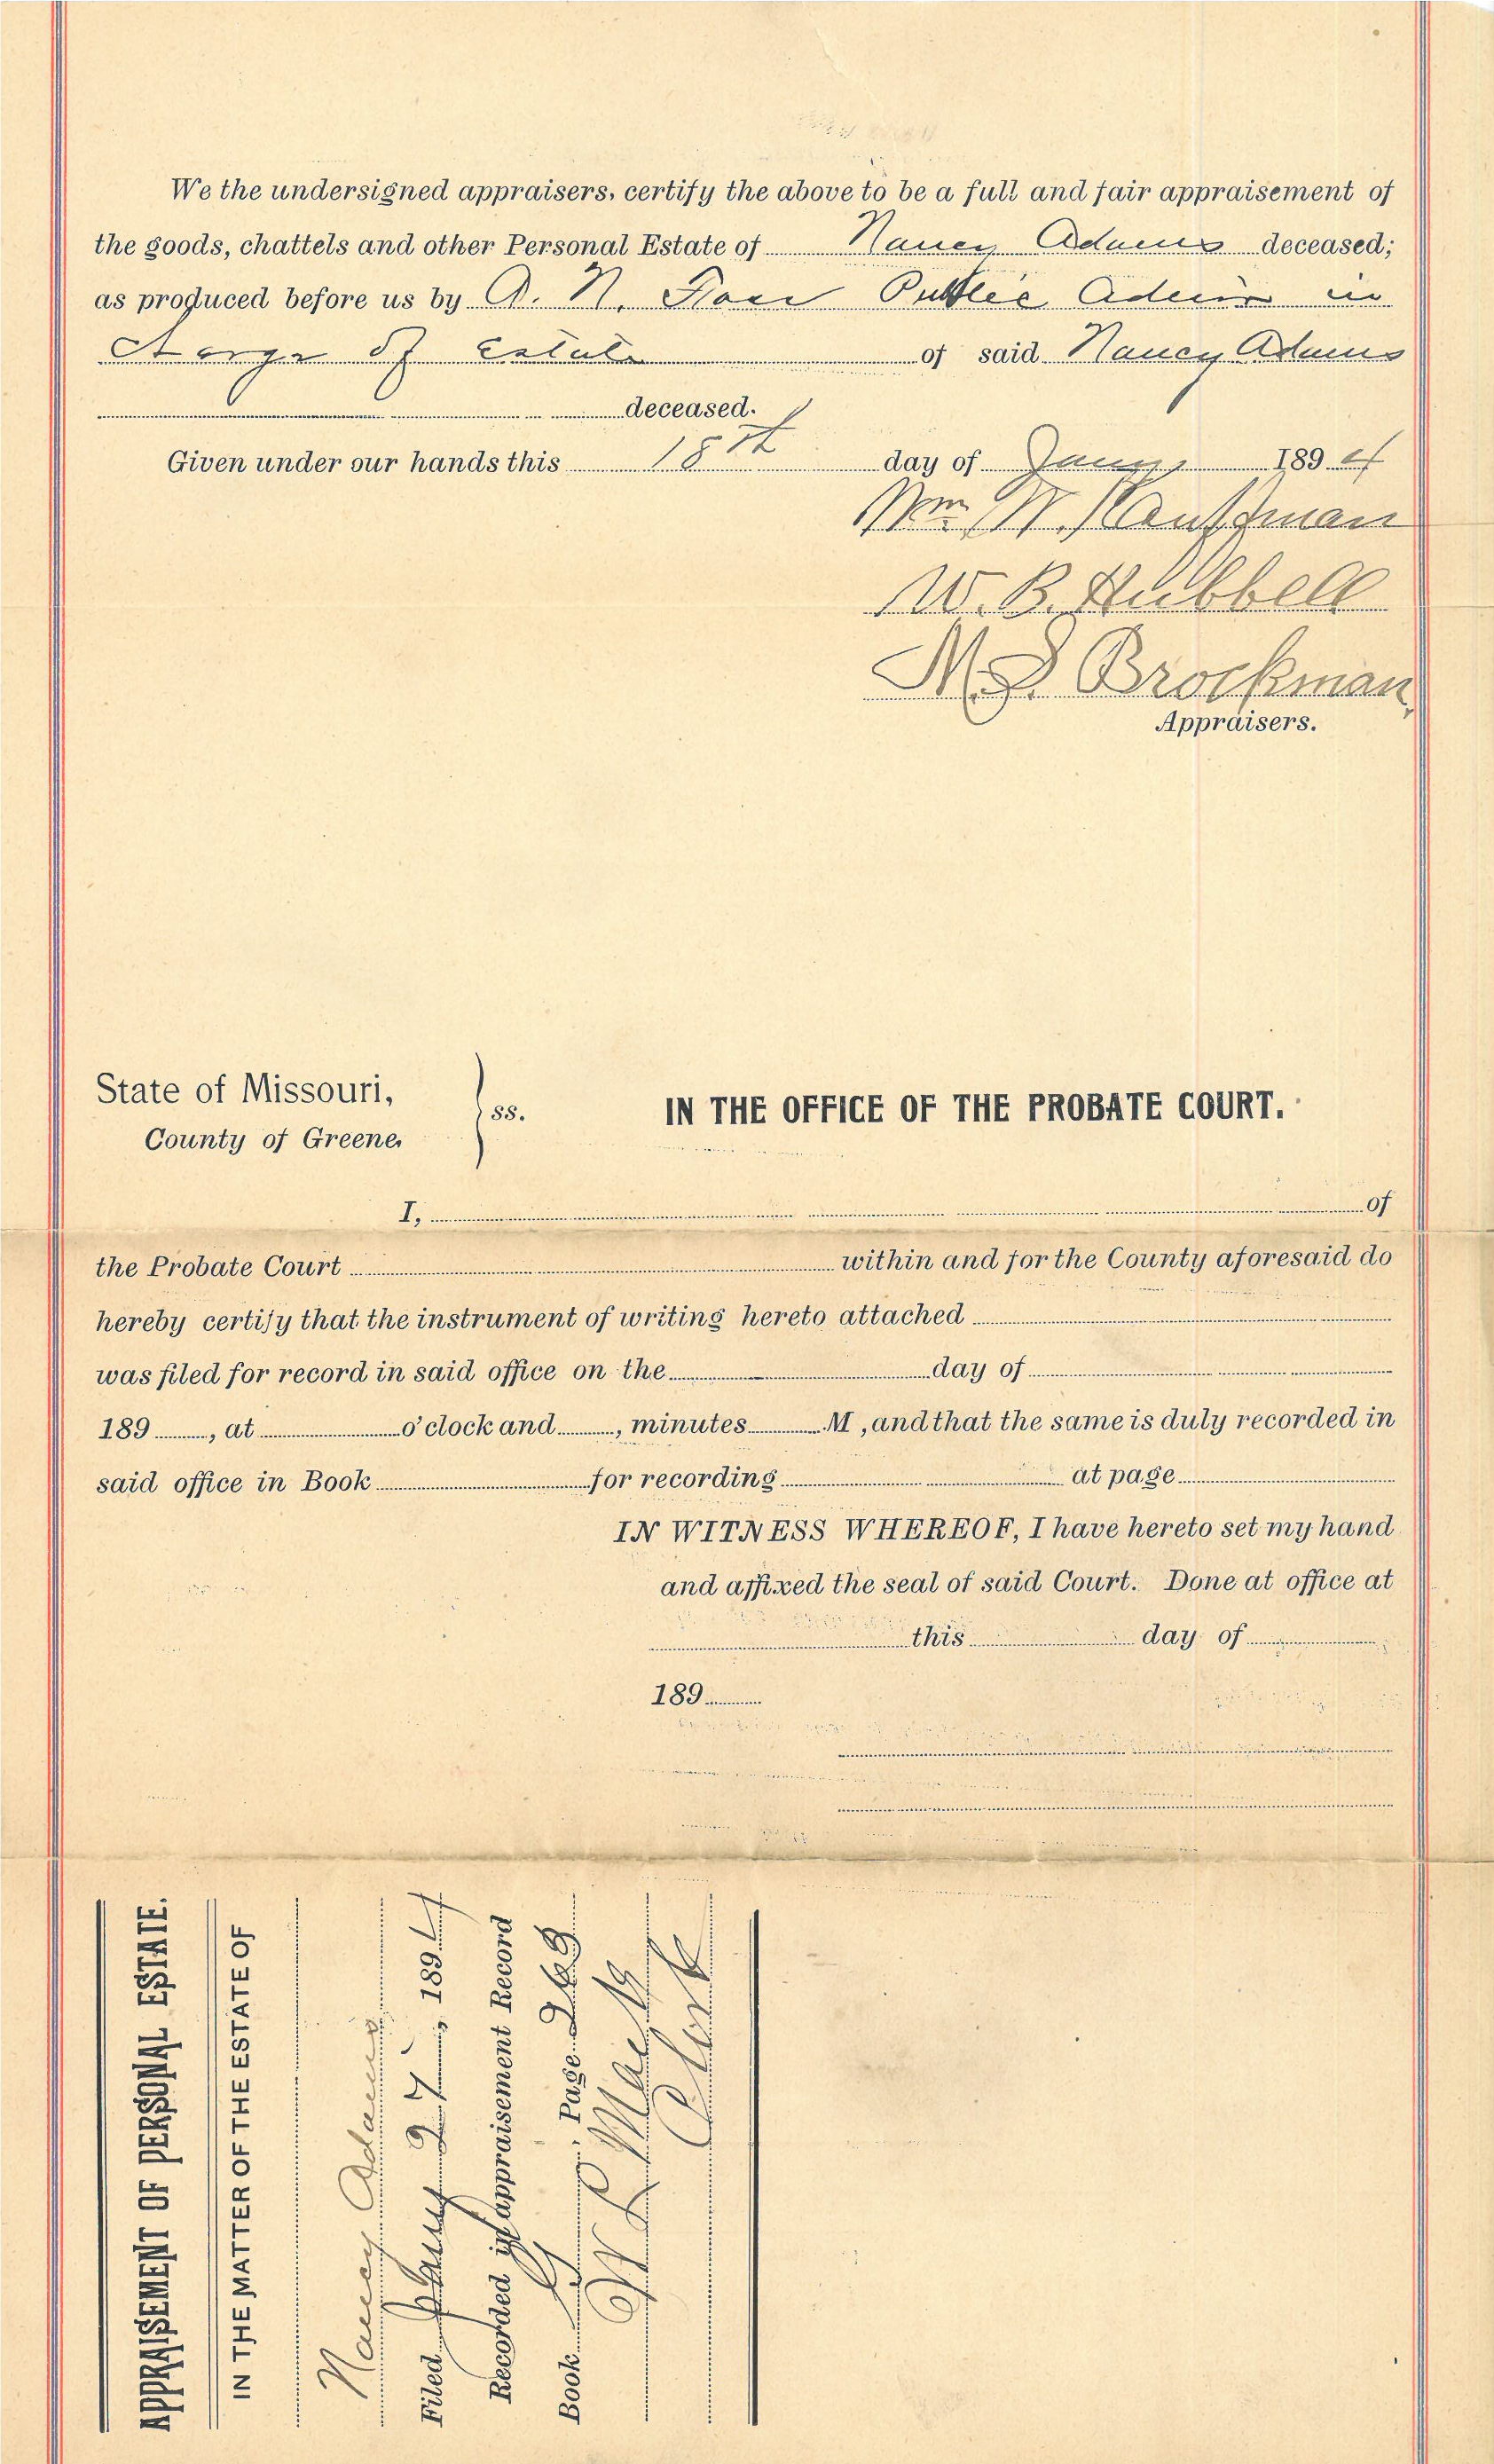 We the undersigned appraisers, certify the above to be a full and fair appraisement of
the goods, chattels and other Personal Estate of Nancy Adams deceased;
as produced before us by A. N. Public Admr in
charge of Estate of said Nancy Adams
deceased.
Given under our hands this 18th day of Jany 1894
Wm W. Kauffman
W. B. Hubbell
M. S. Brockman
Appraisers.
State of Missouri,
County of Greene, ss.
IN THE OFFICE OF THE PROBATE COURT.
I, of
the Probate Court within and for the County aforesaid do
hereby certify that the instrument of writing hereto attached
was filed for record in said office on the day of
189 , at o'clock and , minutes M , and that the same is duly recorded in
said office in Book for recording at page
IN WITNESS WHEREOF, I have hereto set my hand
and affixed the seal of said Court. Done at office at
this day of
189
APPRAISEMENT OF PERSONAL ESTATE.
IN THE MATTER OF THE ESTATE OF
Nancy Adams
Filed Jany 27, 1894
Recorded in appraisement Record
Book Page 269
Clerk